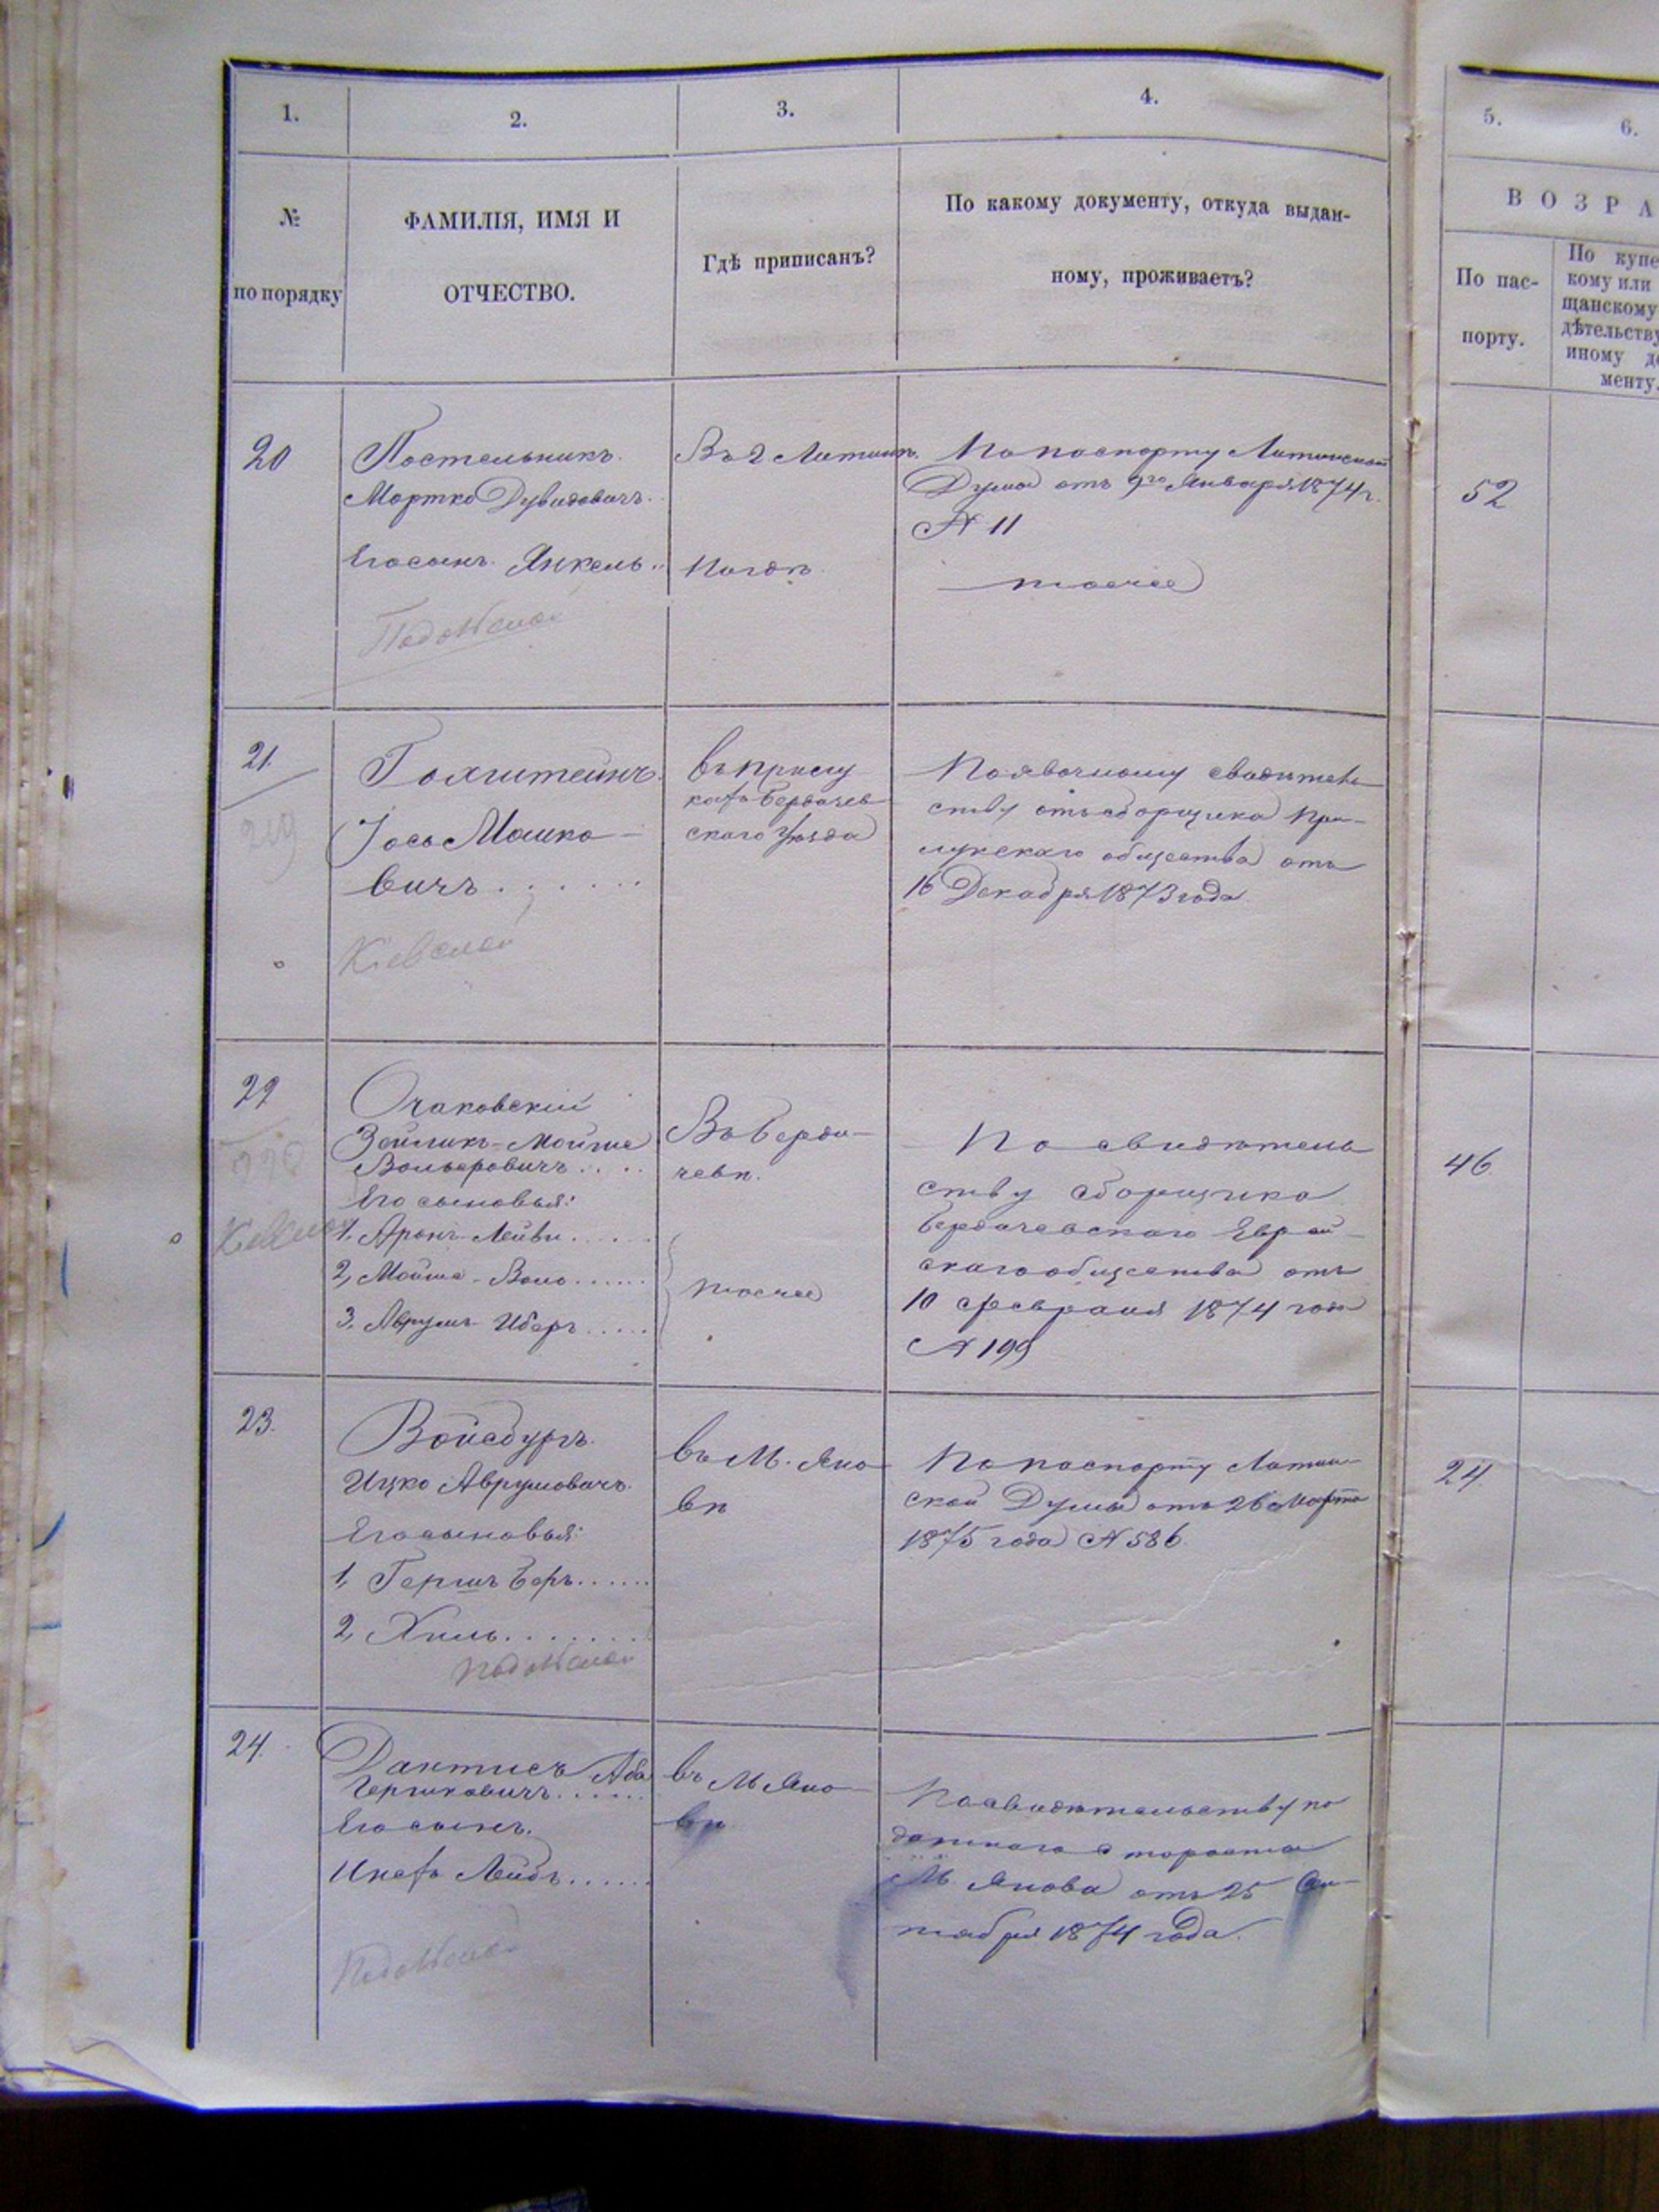 1.
2.
3.
4.
5.
6.
№
по порядку
ФАМИЛІЯ, ИМЯ И
ОТЧЕСТВО.
Гдѣ приписанъ?
По какому документу, откуда выдан-
ному, проживаетъ?
ВОЗРА
По пас-
порту.
По купе
кому или
щанскому
дѣтельству
иному до
менту.
20
Постельникъ.
Мортко Дувидовичъ.
Его сынъ. Янкель..
Подольской
Въ г Литинѣ.
По паспорту Литинской
Думы отъ 9го Января 1874 г.
№ 11
тоже
52
21.
219
Іось Мошко-
вичъ.......
Кіевской
въ Прилу
кахъ Бердичев
скаго уѣзда
По явочному свидѣтель
ству отъ сборщика При-
лукскаго общества отъ
16 Декабря 1873 года
22
220
Кіевской
Очаковскій
Зейликъ-Мойше
Вольфовичъ....
Его сыновья:
1. Аронъ-Лейви.....
2, Мойше-Волю......
3. Аврумъ Иберъ.....
Въ Берди-
чевѣ.
тоже
По свидѣтель
ству сборщика
Бердичевскаго Еврей-
скаго общества отъ
10 февраля 1874 года
№ 199
46.
23.
Войсбургъ.
Ицко Аврумовичъ.
Его сыновья:
1, Гершъ Беръ......
2, Хиль.......
Подольской
въ М. Яно
вѣ
По паспорту Литин-
ской Думы отъ 26 Марта
1875 года № 586
24.
24.
Дантисъ Аба
Гершковичъ......
Его сынъ.
Лейбъ......
Подольской
въ М Яно
вѣ
По свидѣтельству по
датнаго старосты
М. Янова отъ 25 Сен-
тября 1874 года.